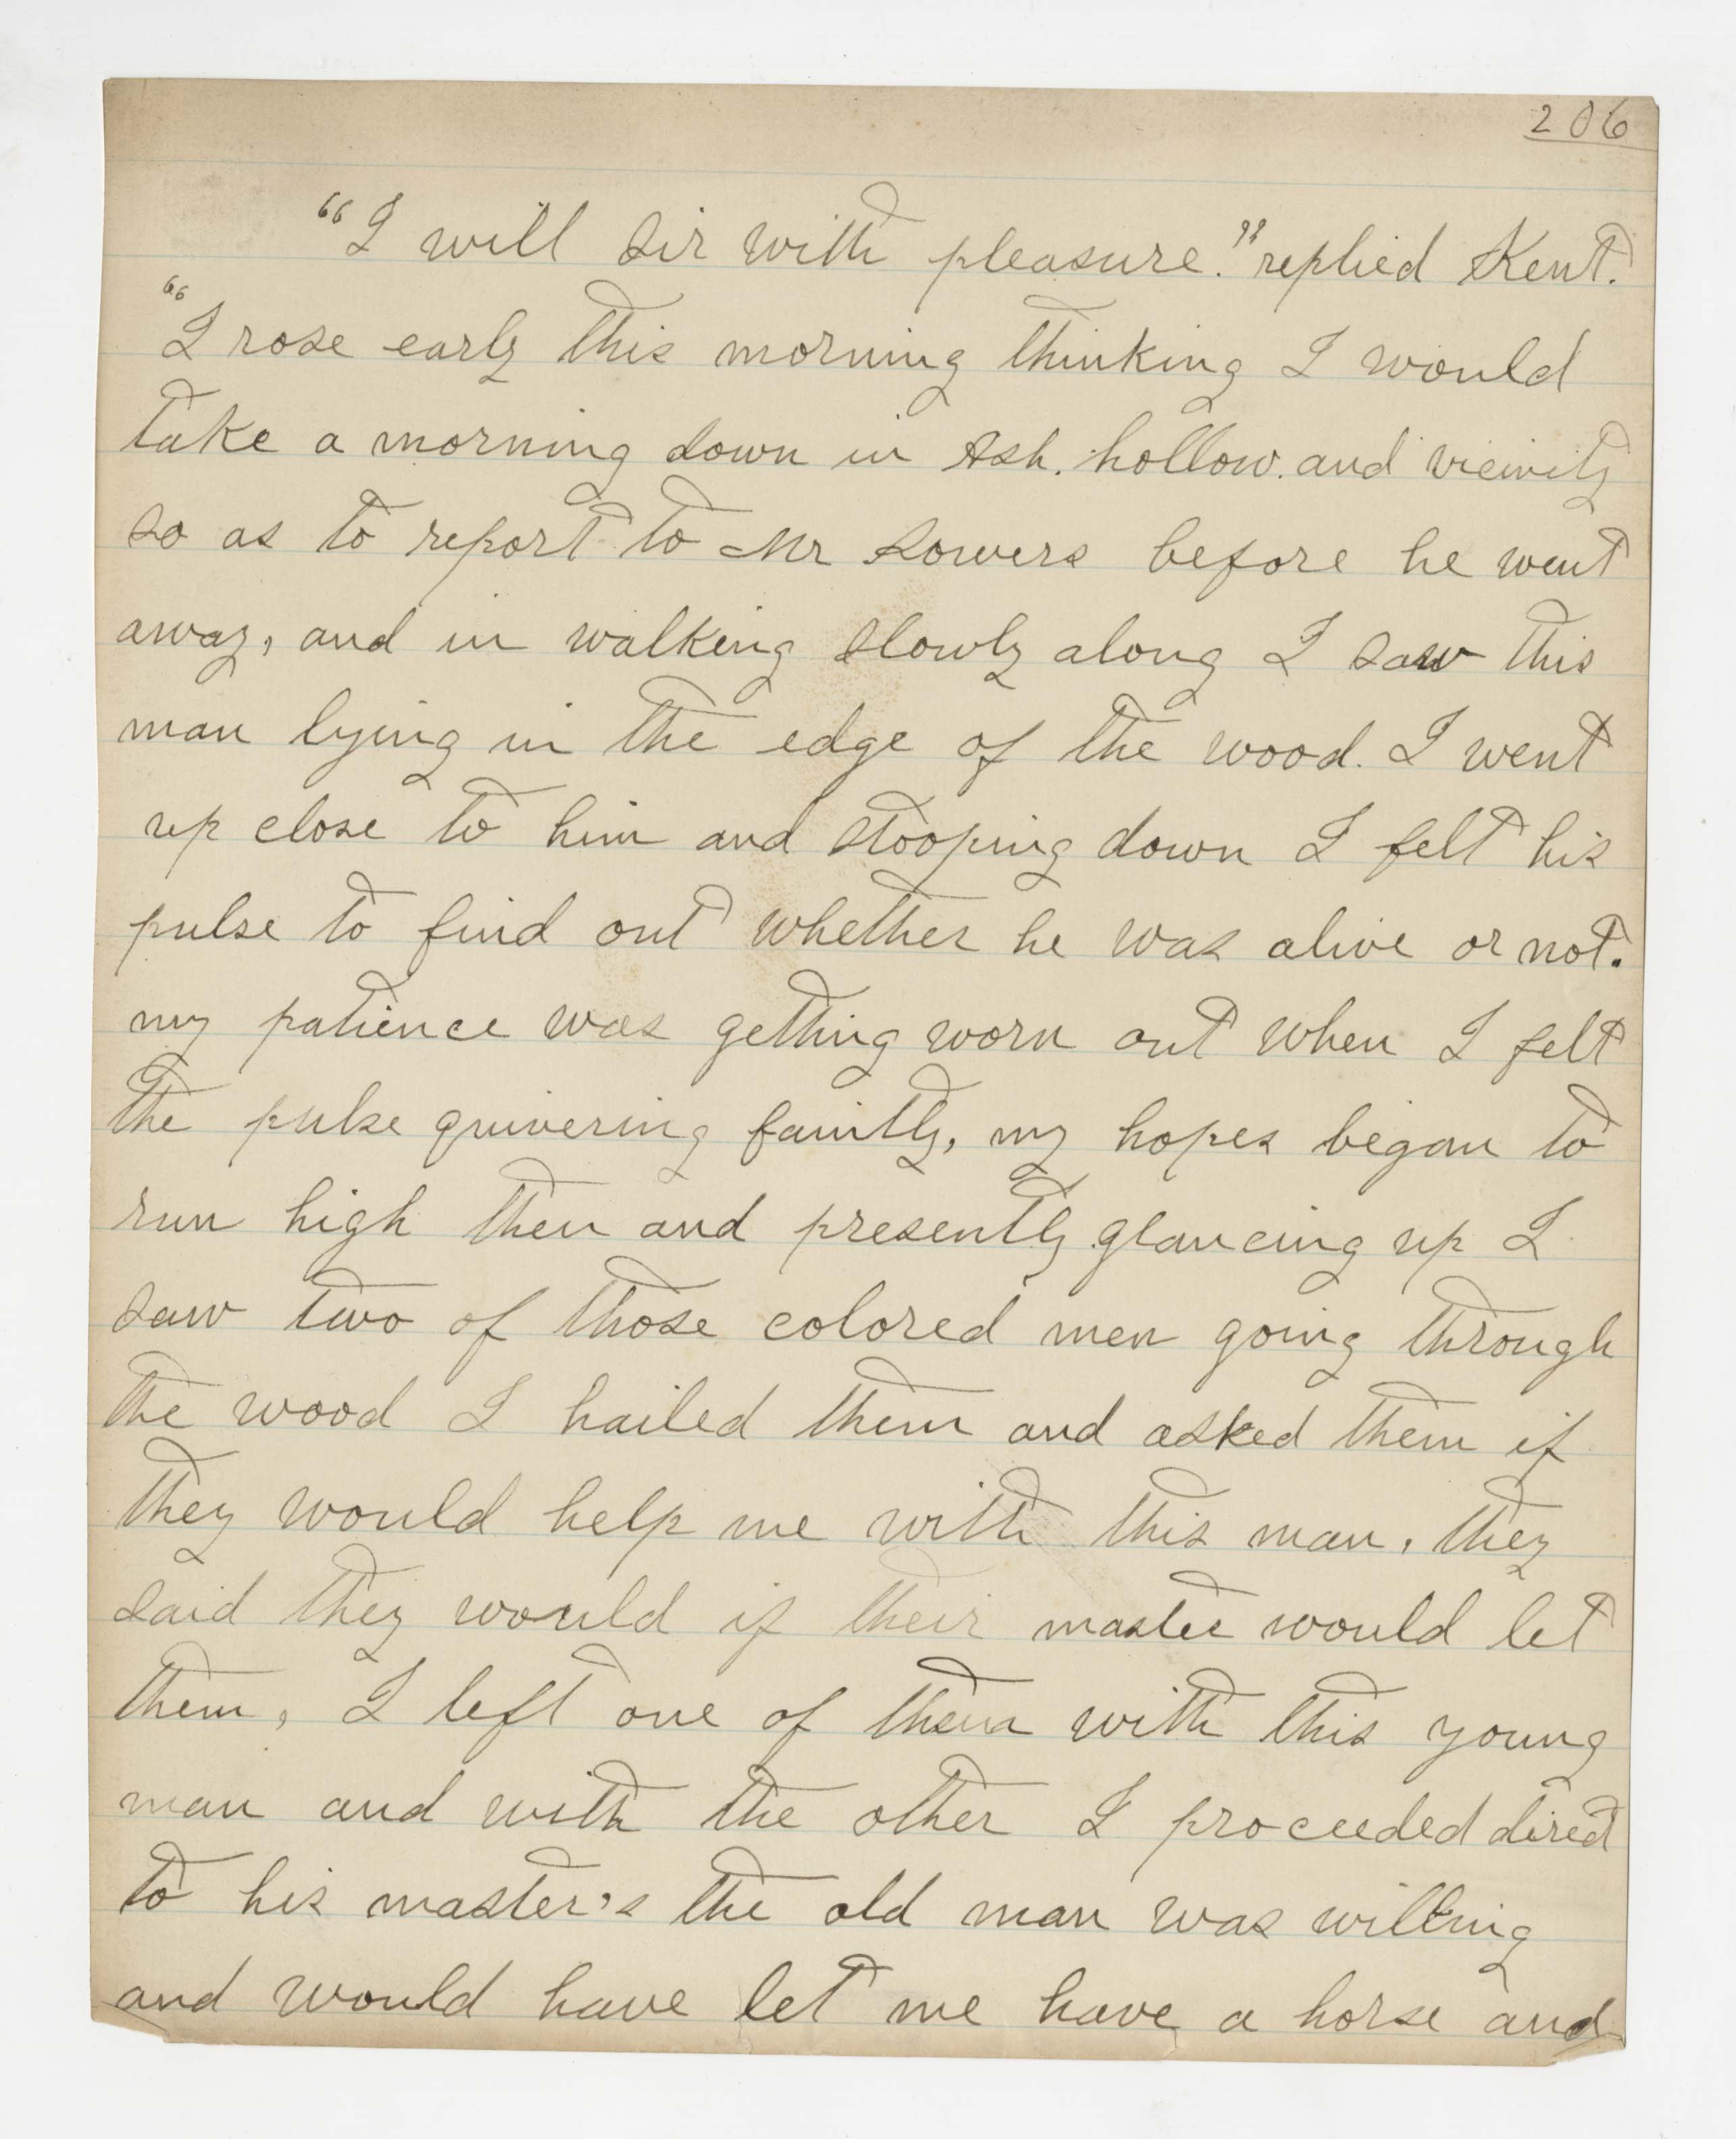 206
"I will sir with pleasure." replied Kent.
"I rose early this morning thinking I would
take a morning down in Ash. hollow. and vicinity
so as to report to Mr Sowers before he went
away, and in walking slowly along I saw this
man lying in the edge of the wood. I went
up close to him and stooping down I felt his
pulse to find out whether he was alive or not.
my patience was getting worn out when I felt
the pulse quivering faintly, my hopes began to
run high then and presently glancing up I
saw two of those colored men going through
the wood I hailed them and asked them if
they would help me with this man, they
said they would if their master would let
them, I left one of them with this young
man and with the other I proceeded direct
to his master's the old man was willing
and would have let me have a horse and